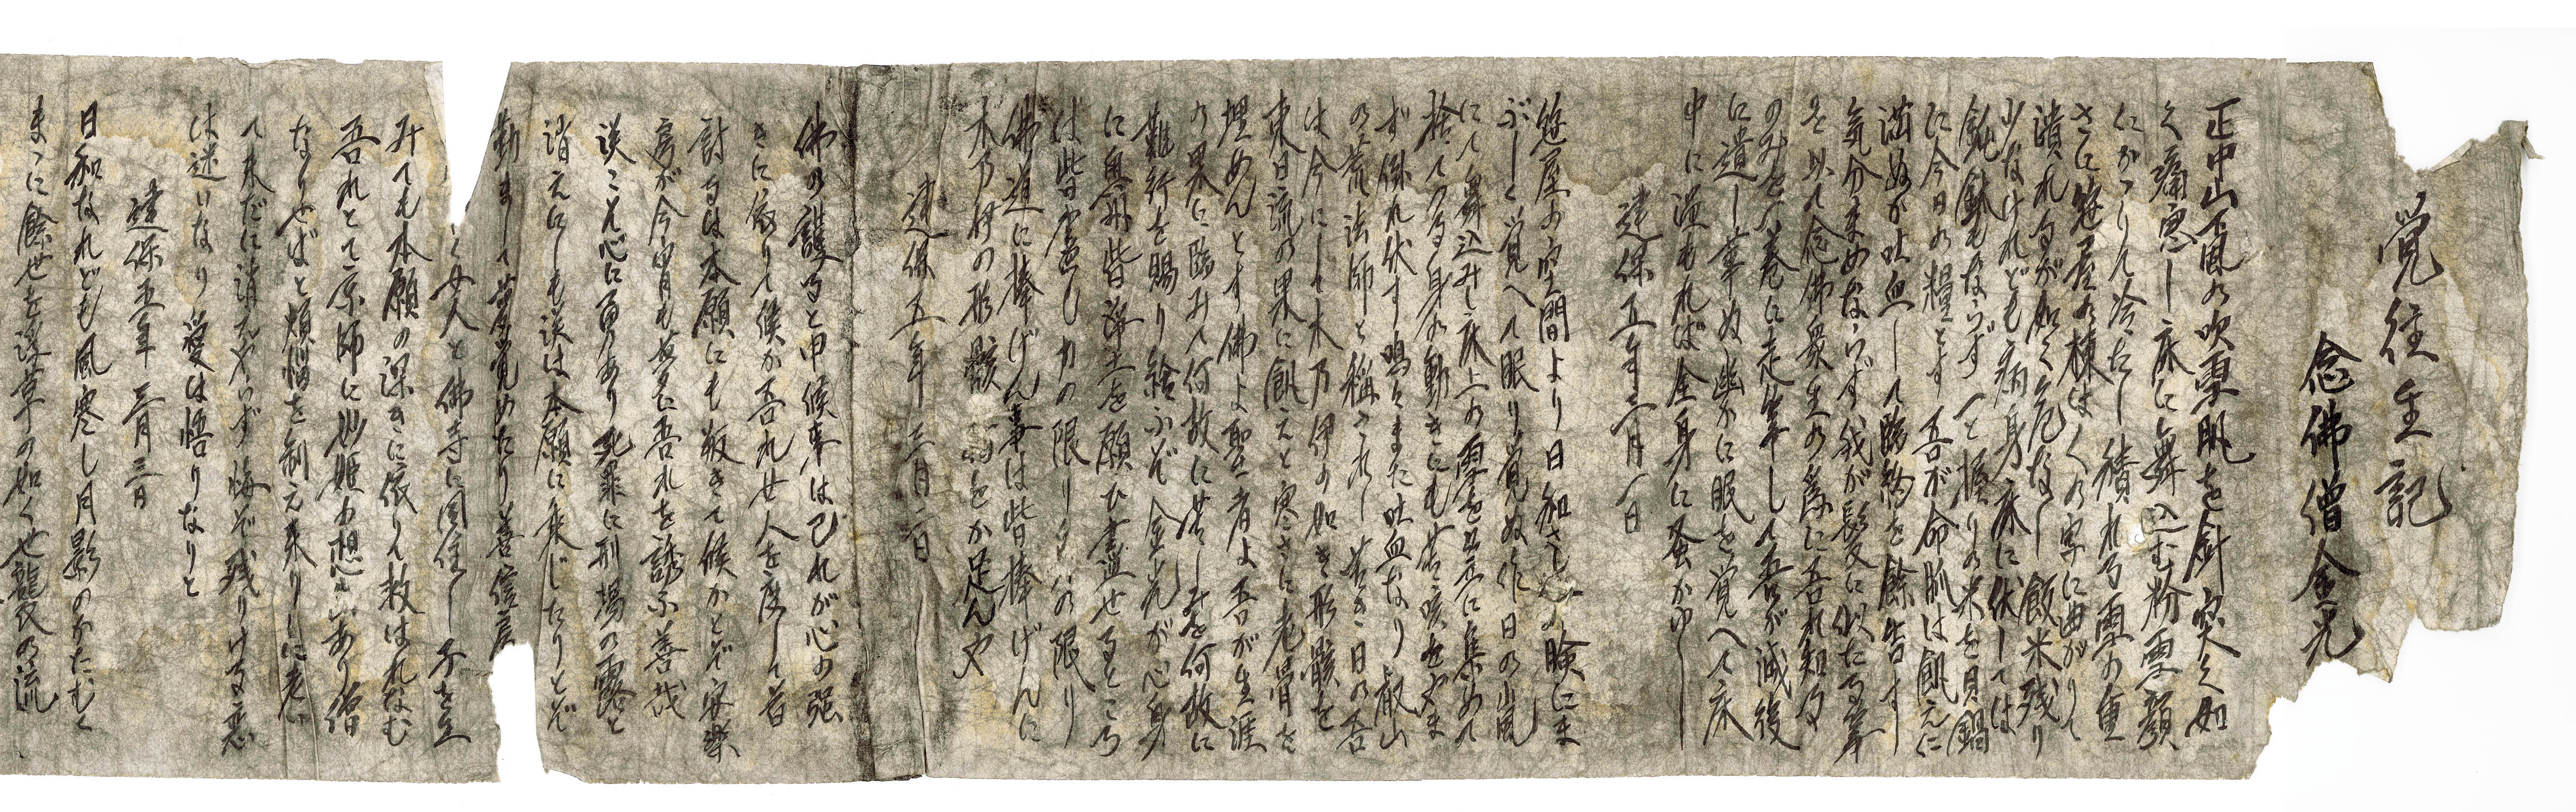 覚往生記
念佛僧金光
正中山颪の吹雪肌を針突く如
く痛悪し床に舞込む粉雪顔
にかゝりて冷たし積れる雪の重
さに笹屋の棟はくの字に曲がりて
潰れるが如く危なし飯米残り
少なけれども病身床に伏しては
飩鉢もならず一と握りの米を貝鍋
に今日の糧とす吾が命脈は飢えに
満ぬが吐血して臨終を餘告す
気分まめならず我が髪に似たる筆
を以て念佛衆生の為に吾れ知る
のみを八巻に走筆しして吾が滅後
に遺し筆ぬ幽かに眠を覚へて床
中に温もれば全身に蚤かゆし
建保五年三月一日
笹屋の空間より日和さしの険にま
ぶしく覚へて眠り覚ぬ作日の山風
にて舞込みし床上の雪を一点に集めて
捨てる身の動きにも苦咳をやま
ず倒れ伏す鳴々また吐血なり叡山
の荒法師と稱されし若き日の吾
は今にして木乃伊の如き形骸を
東日流の果に飢えと寒さに老骨を
埋めんとす佛よ聖者よ吾が生涯
の果に臨みて何故に苦しみを何故に
難行を賜り給ふぞ金光が心身
に奥州皆浄土を願ひ書溢せるところ
は皆盡し力の限り 心の限り
佛道に棒げん事は皆棒げんに
木乃伊の形骸 をか足んや
建保五年三月二日
佛の護ると申候事は己れが心の強
きに依りて候か吾れ世人を度して者
討るは本願にも叛きて候かとぞ安楽
房が今宵も夢に吾れを誘ふ善哉
淡こそ心に勇あり死罪に刑場の露と
消えにしも淡は本願に来じたりとぞ
動まして夢覚めたり善信房
く女人と佛寺に同住し子を生
みても本願の深きに依りて救はれなむ
吾れとて京師に妙姫の想いあり僧
なりせばと煩悩を制え来りしに老い
て未だに消えやらず悔ぞ残りける恋
は迷いなり愛は悟りなりと
建保五年三月三日
日和なれども風寒し月影のかたむく
まゝに餘世を浮草の如く世襲の流